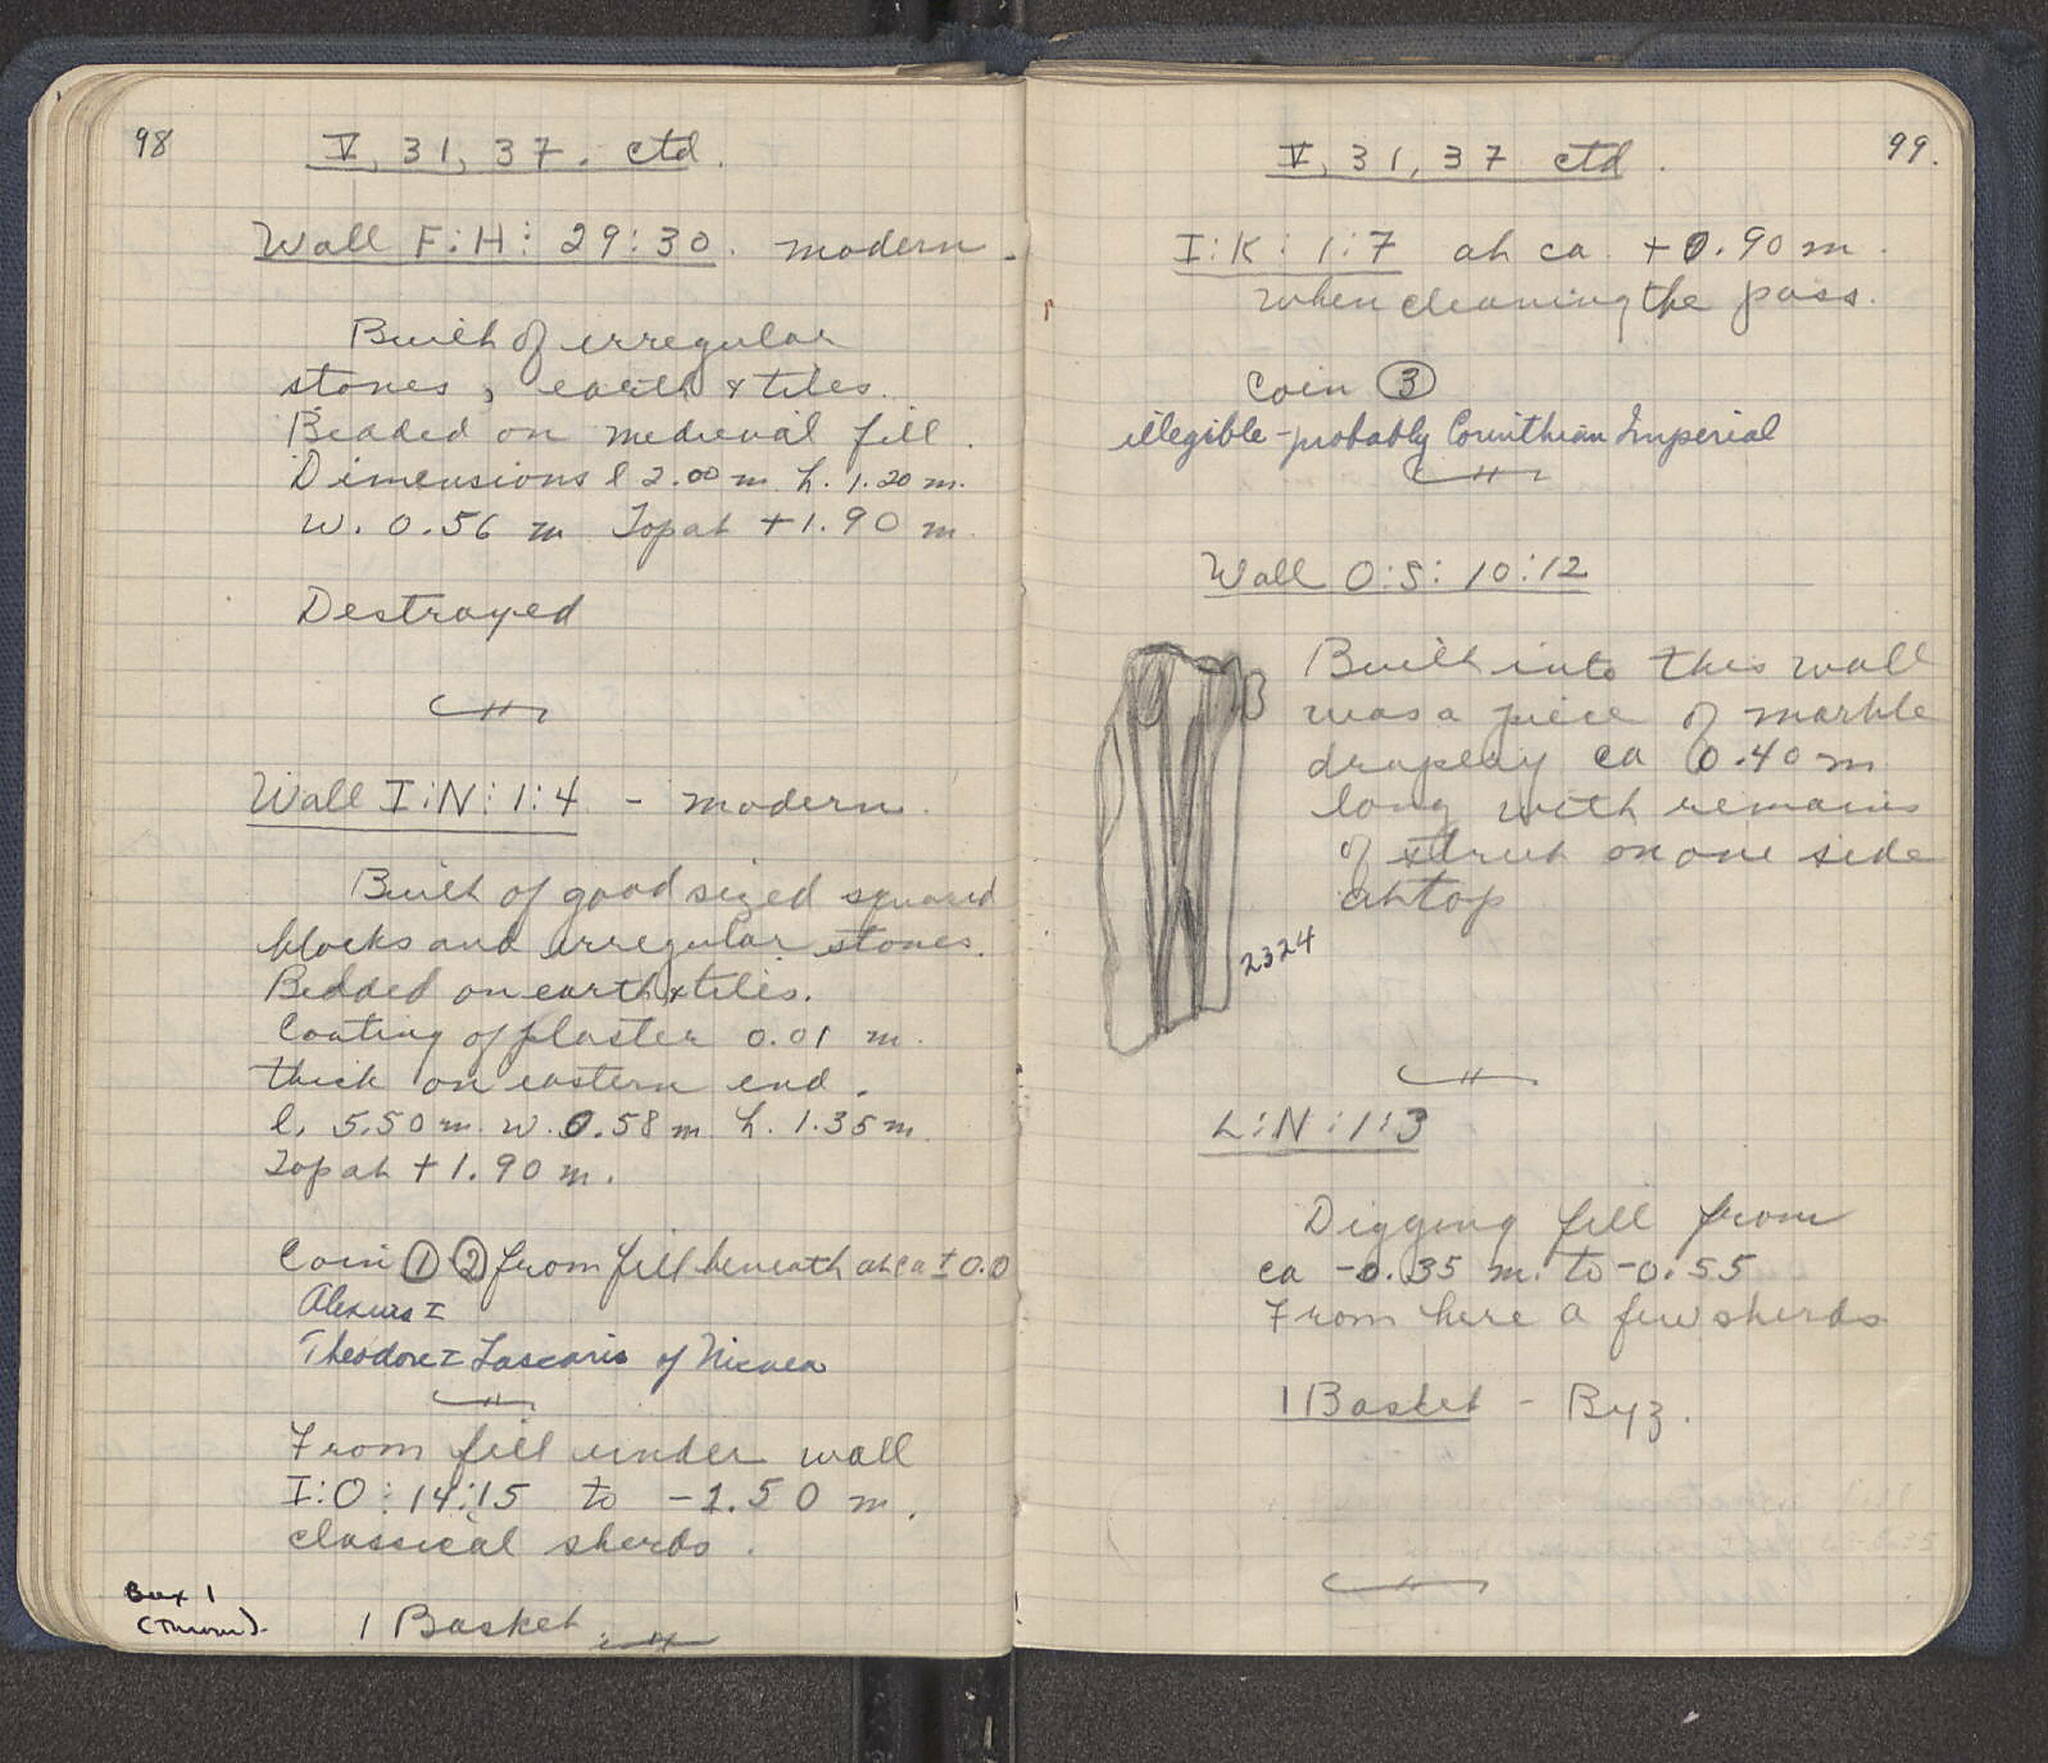 98
V, 31, 37. ctd.
Wall F:H: 29:30. modern.
Built of irregular
stones, earth & tiles.
Bedded on medieval fill.
Dimensions l 2.00 m. h. 1.20 m.
w. 0.56 m Top at +1.90 m.
Destroyed
Wall I:N: 1:4 - modern.
Built of good sized squared
blocks and irregular stones.
Bedded on earth & tiles.
Coating of plaster 0.01 m.
thick on eastern end.
l. 5.50 m. w. 0.58 m. h. 1.35 m.
Top at +1.90 m.
Coin ① ② from fill beneath at ca ± 0.0
Alexius I
Theodore I Lascaris of Nicaea
From fill under wall
I:O: 14:15 to -2.50 m.
classical sherds.
Box 1
1 Basket.
99.
V, 31, 37 ctd.
I:K: 1:7 at ca. +0.90 m.
when cleaning the pass.
Coin ③
illegible - probably Corinthian Imperial
Wall O:S: 10:12
Built into this wall
was a piece of marble
drapery ca 0.40 m
long with remains
of strut on one side
at top
2324
L:N: 1:3
Digging fill from
ca -0.35 m. to -0.55
From here a few sherds
1 Basket - Byz.